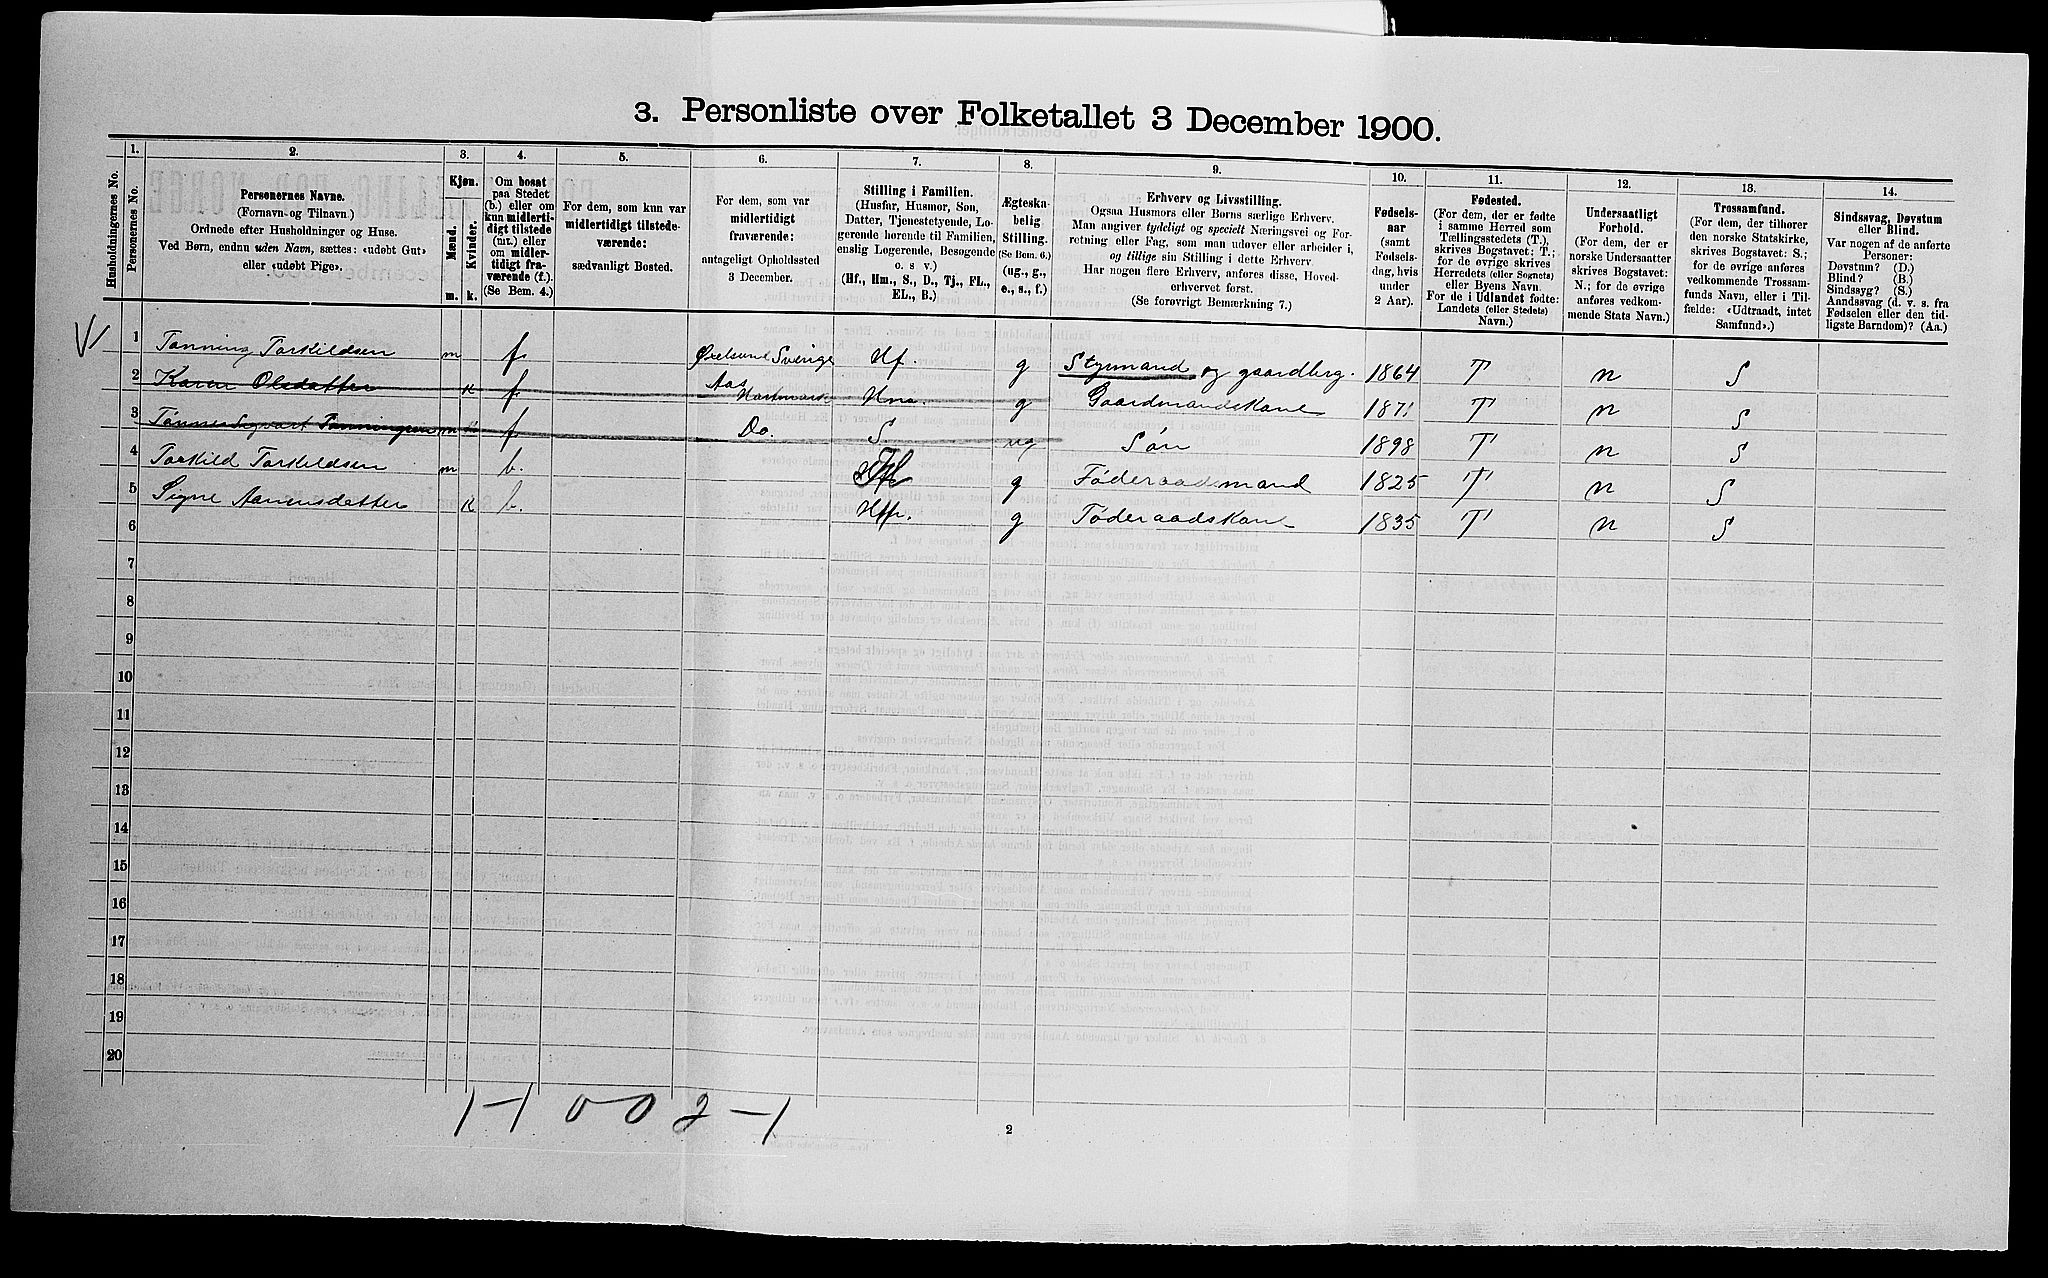 3. Personliste over Folketallet 3 December 1900.
1. 2. 3. 4. 5. 6. 7. 8. 9. 10. 11. 12. 13. 14.
Husholdningernes No.
Personernes No.
Personernes Navne.
(Fornavn og Tilnavn.)
Ordnede efter Husholdninger og Huse.
Ved Børn, endnu uden Navn, sættes: «udøbt Gut»
eller «udøbt Pige».
Kjøn.
Mænd.
Kvinder.
m. k.
Om bosat
paa Stedet
(b.) eller om
kun midlerti-
digt tilstede
(mt.) eller
om midler-
tidigt fra-
værende (f.).
(Se Bem. 4.)
For dem, som kun var
midlertidigt tilstede-
værende:
sædvanligt Bosted.
For dem, som var
midlertidigt
fraværende:
antageligt Opholdssted
3 December.
Stilling i Familien.
(Husfar, Husmor, Søn,
Datter, Tjenestetyende, Lo-
gerende hørende til Familien,
enslig Logerende, Besøgende
o. s. v.)
(Hf., Hm., S., D., Tj., FL.,
EL., B.)
Ægteska-
belig
Stilling.
(Se Bem. 6.)
(ug., g.,
e., s., f.)
Erhverv og Livsstilling.
Ogsaa Husmors eller Børns særlige Erhverv.
Man angiver tydeligt og specielt Næringsvei og For-
retning eller Fag, som man udøver eller arbeider i,
og tillige sin Stilling i dette Erhverv.
Har nogen flere Erhverv, anføres disse, Hoved-
erhvervet først.
(Se forøvrigt Bemærkning 7.)
Fødsels-
aar
(samt
Fødsels-
dag, hvis
under
2 Aar).
Fødested.
(For dem, der er fødte
i samme Herred som
Tællingsstedets (T.),
skrives Bogstavet: T.;
for de øvrige skrives
Herredets (eller Sognets)
eller Byens Navn.
For de i Udlandet fødte:
Landets (eller Stedets)
Navn.)
Undersaatligt
Forhold.
(For dem, der er
norske Undersaatter
skrives Bogstavet:
N.; for de øvrige
anføres vedkom-
mende Stats Navn.)
Trossamfund.
(For dem, der tilhører
den norske Statskirke,
skrives Bogstavet: S.;
for de øvrige anføres
vedkommende Trossam-
funds Navn, eller i Til-
fælde: «Udtraadt, intet
Samfund».)
Sindssvag, Døvstum
eller Blind.
Var nogen af de anførte
Personer:
Døvstum? (D.)
Blind? (B.)
Sindssyg? (S.)
Aandssvag (d. v. s. fra
Fødselen eller den tid-
ligste Barndom)? (Aa.)
1 Tønning Torkildsen m f. Øxelsund Sverige Hf. g Styrmand og gaardbrg. 1864 T n S
2 Karen Olsdatter K f. Aas Hm. g Gaardmandskone 1871 T n S
3 Tønnes Sigvart Tønningsen m f. Do. S. ug Søn 1898 T n S
4 Torkild Torkildsen m b. g Føderaadsmand 1825 T n S
5 Signe Aanensdatter K b. g Føderaadskone 1835 T n S
6
7
8
9
10
11
12
13
14
15
16
17
18
19
20
2